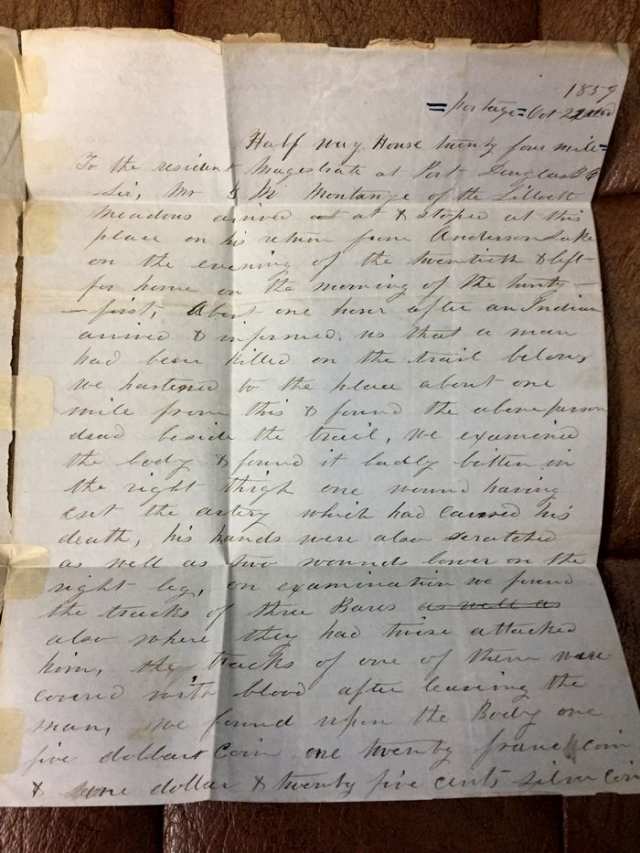 1859
= Portage = Oct 22nd
Half way House twenty four mile =
To the resident Magestrate at Port Douglas B C
Sir, Mr Montange of the Lilloett
Meadows arived at & stoped at this
place on his return from Anderson Lake
on the evening of the twentieth & left
for home on the morning of the twenty
- first, About one hour after an Indian
arived & informed us that a man
had been killed on the trail below,
we hastened to the place about one
mile from this & found the above person
dead beside the trail, we examined
the body & found it badly bitten in
the right thigh one wound having
cut the artery which had caused his
death, his hands were also scratched
as well as two wounds lower on the
right leg, on examination we found
the tracks of three Bares as well as
also where they had twise attacked
him, the tracks of one of them were
covered with blood after leaving the
man, we found upon the Body one
five dollars Coin one twenty franc coin
& one dollar & twenty five cents silver coin